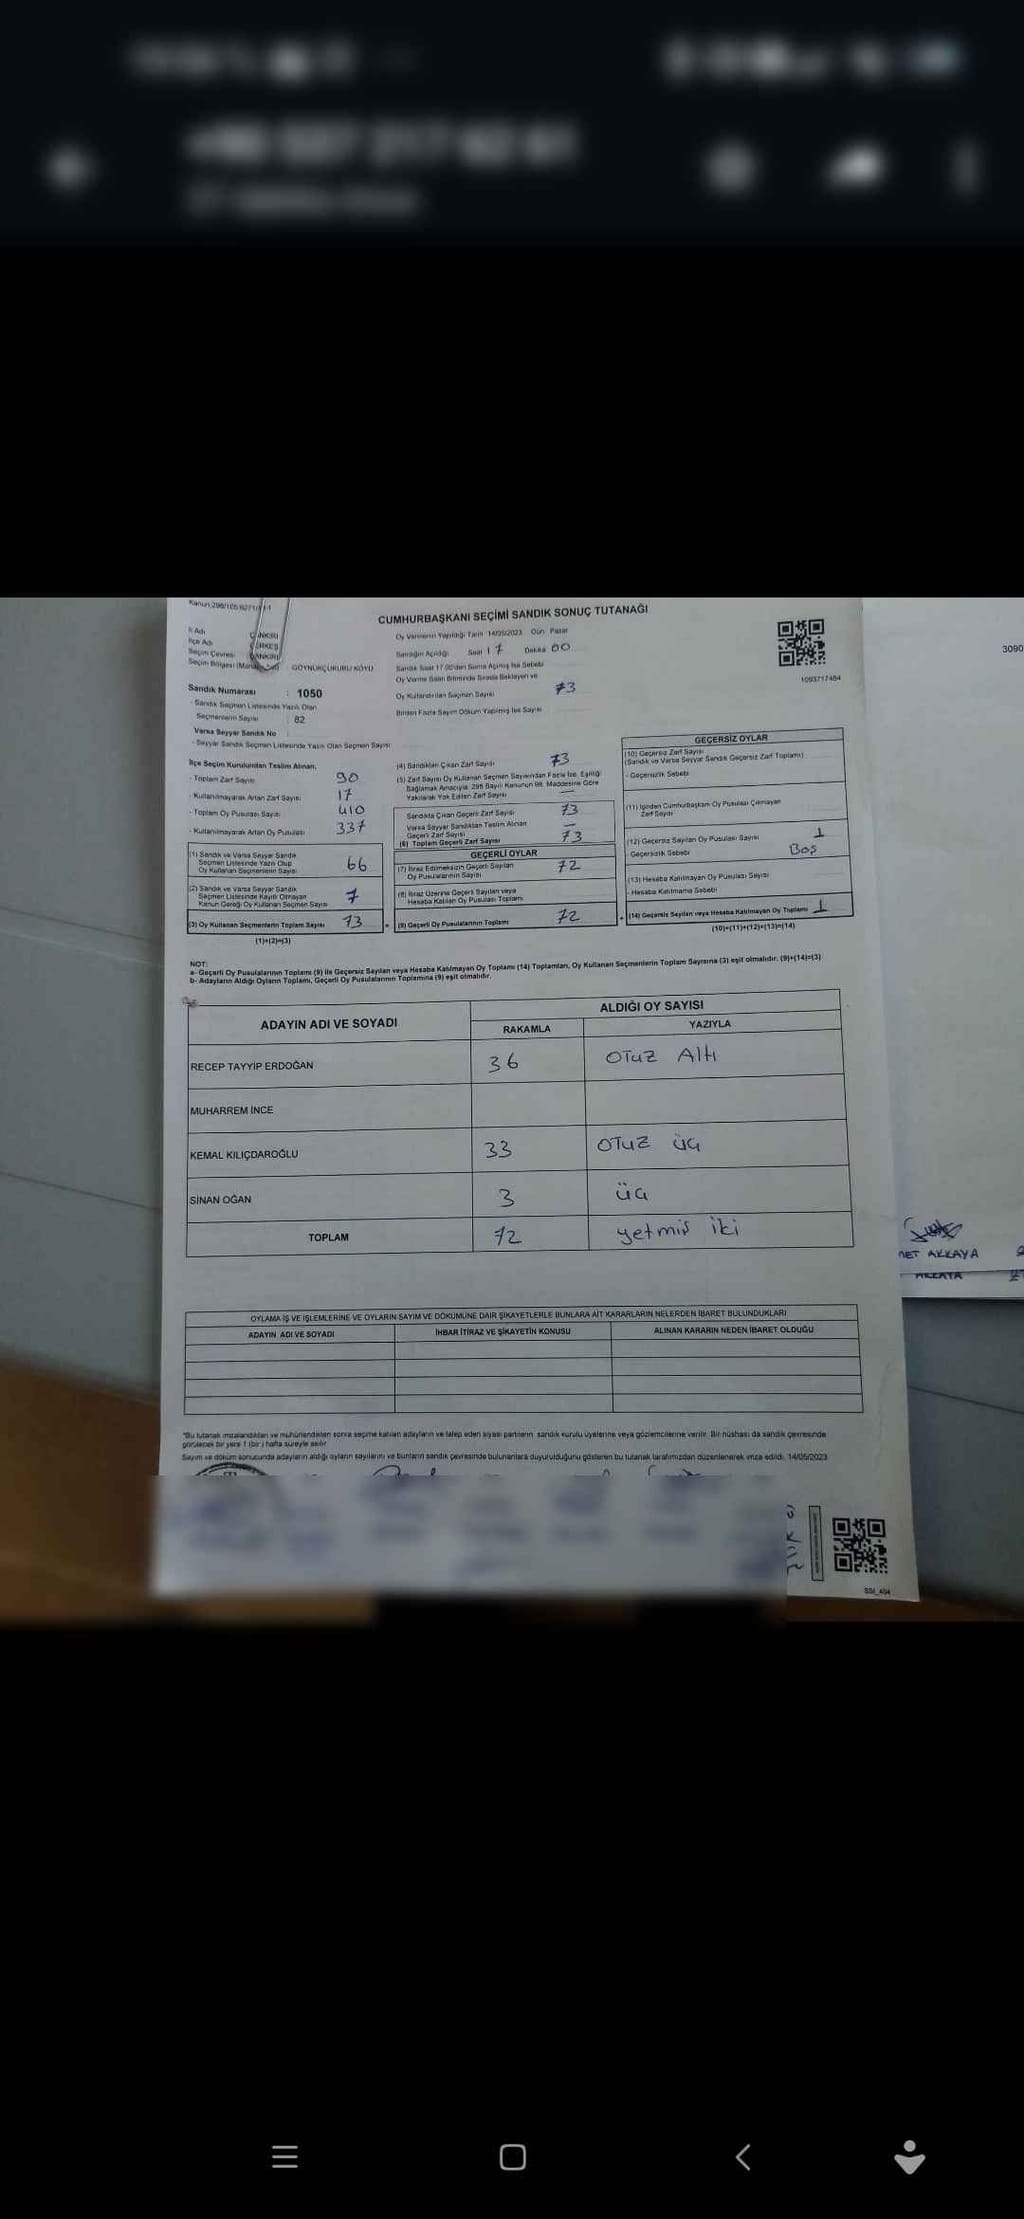 Kanun:298/105
CUMHURBAŞKANI SEÇİMİ SANDIK SONUÇ TUTANAĞI
İl Adı ÇANKIRI
İlçe Adı ÇERKEŞ
Seçim Çevresi ÇANKIRI
Seçim Bölgesi GÖYNÜKÇUKURU KÖYÜ
Sandık Numarası : 1050
- Sandık Seçmen Listesinde Yazılı Olan
Seçmenlerin Sayısı : 82
Varsa Seyyar Sandık No
- Seyyar Sandık Seçmen Listesinde Yazılı Olan Seçmen Sayısı
Oy Vermenin Yapıldığı Tarih 14/05/2023 Gün Pazar
Sandığın Açıldığı Saat 17 Dakika 00
Sandık Saat 17.00'den Sonra Açılmış İse Sebebi
Oy Verme Saati Bitiminde Sırada Bekleyen ve
Oy Kullandırılan Seçmen Sayısı 73
Birden Fazla Sayım Döküm Yapılmış İse Sayısı
1093717484
İlçe Seçim Kurulundan Teslim Alınan,
- Toplam Zarf Sayısı 90
- Kullanılmayarak Artan Zarf Sayısı 17
- Toplam Oy Pusulası Sayısı 410
- Kullanılmayarak Artan Oy Pusulası 337
(1) Sandık ve Varsa Seyyar Sandık
Seçmen Listesinde Yazılı Olup
Oy Kullanan Seçmenlerin Sayısı 66
(2) Sandık ve Varsa Seyyar Sandık
Seçmen Listesinde Kayıtlı Olmayan
Kanun Gereği Oy Kullanan Seçmen Sayısı 7
(3) Oy Kullanan Seçmenlerin Toplam Sayısı 73
(1)+(2)=(3)
(4) Sandıktan Çıkan Zarf Sayısı 73
(5) Zarf Sayısı Oy Kullanan Seçmen Sayısından Fazla İse, Eşitliği
Sağlamak Amacıyla, 298 Sayılı Kanunun 98. Maddesine Göre
Yakılarak Yok Edilen Zarf Sayısı —
Sandıkta Çıkan Geçerli Zarf Sayısı 73
Varsa Seyyar Sandıktan Teslim Alınan
Geçerli Zarf Sayısı —
(6) Toplam Geçerli Zarf Sayısı 73
GEÇERLİ OYLAR
(7) İtiraz Edilmeksizin Geçerli Sayılan
Oy Pusulalarının Sayısı 72
(8) İtiraz Üzerine Geçerli Sayılan veya
Hesaba Katılan Oy Pusulası Toplamı
(9) Geçerli Oy Pusulalarının Toplamı 72
GEÇERSİZ OYLAR
(10) Geçersiz Zarf Sayısı
(Sandık ve Varsa Seyyar Sandık Geçersiz Zarf Toplamı)
- Geçersizlik Sebebi
(11) İçinden Cumhurbaşkanı Oy Pusulası Çıkmayan
Zarf Sayısı
(12) Geçersiz Sayılan Oy Pusulası Sayısı 1
- Geçersizlik Sebebi Boş
(13) Hesaba Katılmayan Oy Pusulası Sayısı
- Hesaba Katılmama Sebebi
(14) Geçersiz Sayılan veya Hesaba Katılmayan Oy Toplamı 1
(10)+(11)+(12)+(13)=(14)
NOT:
a- Geçerli Oy Pusulalarının Toplamı (9) ile Geçersiz Sayılan veya Hesaba Katılmayan Oy Toplamı (14) Toplamları, Oy Kullanan Seçmenlerin Toplam Sayısına (3) eşit olmalıdır. (9)+(14)=(3)
b- Adayların Aldığı Oyların Toplamı, Geçerli Oy Pusulalarının Toplamına (9) eşit olmalıdır.
ADAYIN ADI VE SOYADI
ALDIĞI OY SAYISI
RAKAMLA YAZIYLA
RECEP TAYYİP ERDOĞAN 36 OTUZ Altı
MUHARREM İNCE
KEMAL KILIÇDAROĞLU 33 OTUZ üç
SİNAN OĞAN 3 üç
TOPLAM 72 yetmiş iki
OYLAMA İŞ VE İŞLEMLERİNE VE OYLARIN SAYIM VE DÖKÜMÜNE DAİR ŞİKAYETLERLE BUNLARA AİT KARARLARIN NELERDEN İBARET BULUNDUKLARI
ADAYIN ADI VE SOYADI İHBAR İTİRAZ VE ŞİKAYETİN KONUSU ALINAN KARARIN NEDEN İBARET OLDUĞU
*Bu tutanak imzalandıktan ve mühürlendikten sonra seçime katılan adayların ve talep eden siyasi partilerin sandık kurulu üyelerine veya gözlemcilerine verilir. Bir nüshası da sandık çevresinde
görülecek bir yere 1 (bir) hafta süreyle asılır
Sayım ve döküm sonucunda adayların aldığı oyların sayılarını ve bunların sandık çevresinde bulunanlara duyurulduğunu gösteren bu tutanak tarafımızdan düzenlenerek imza edildi. 14/05/2023
SSI_404
3090
MET AKKAYA
AKKAYA